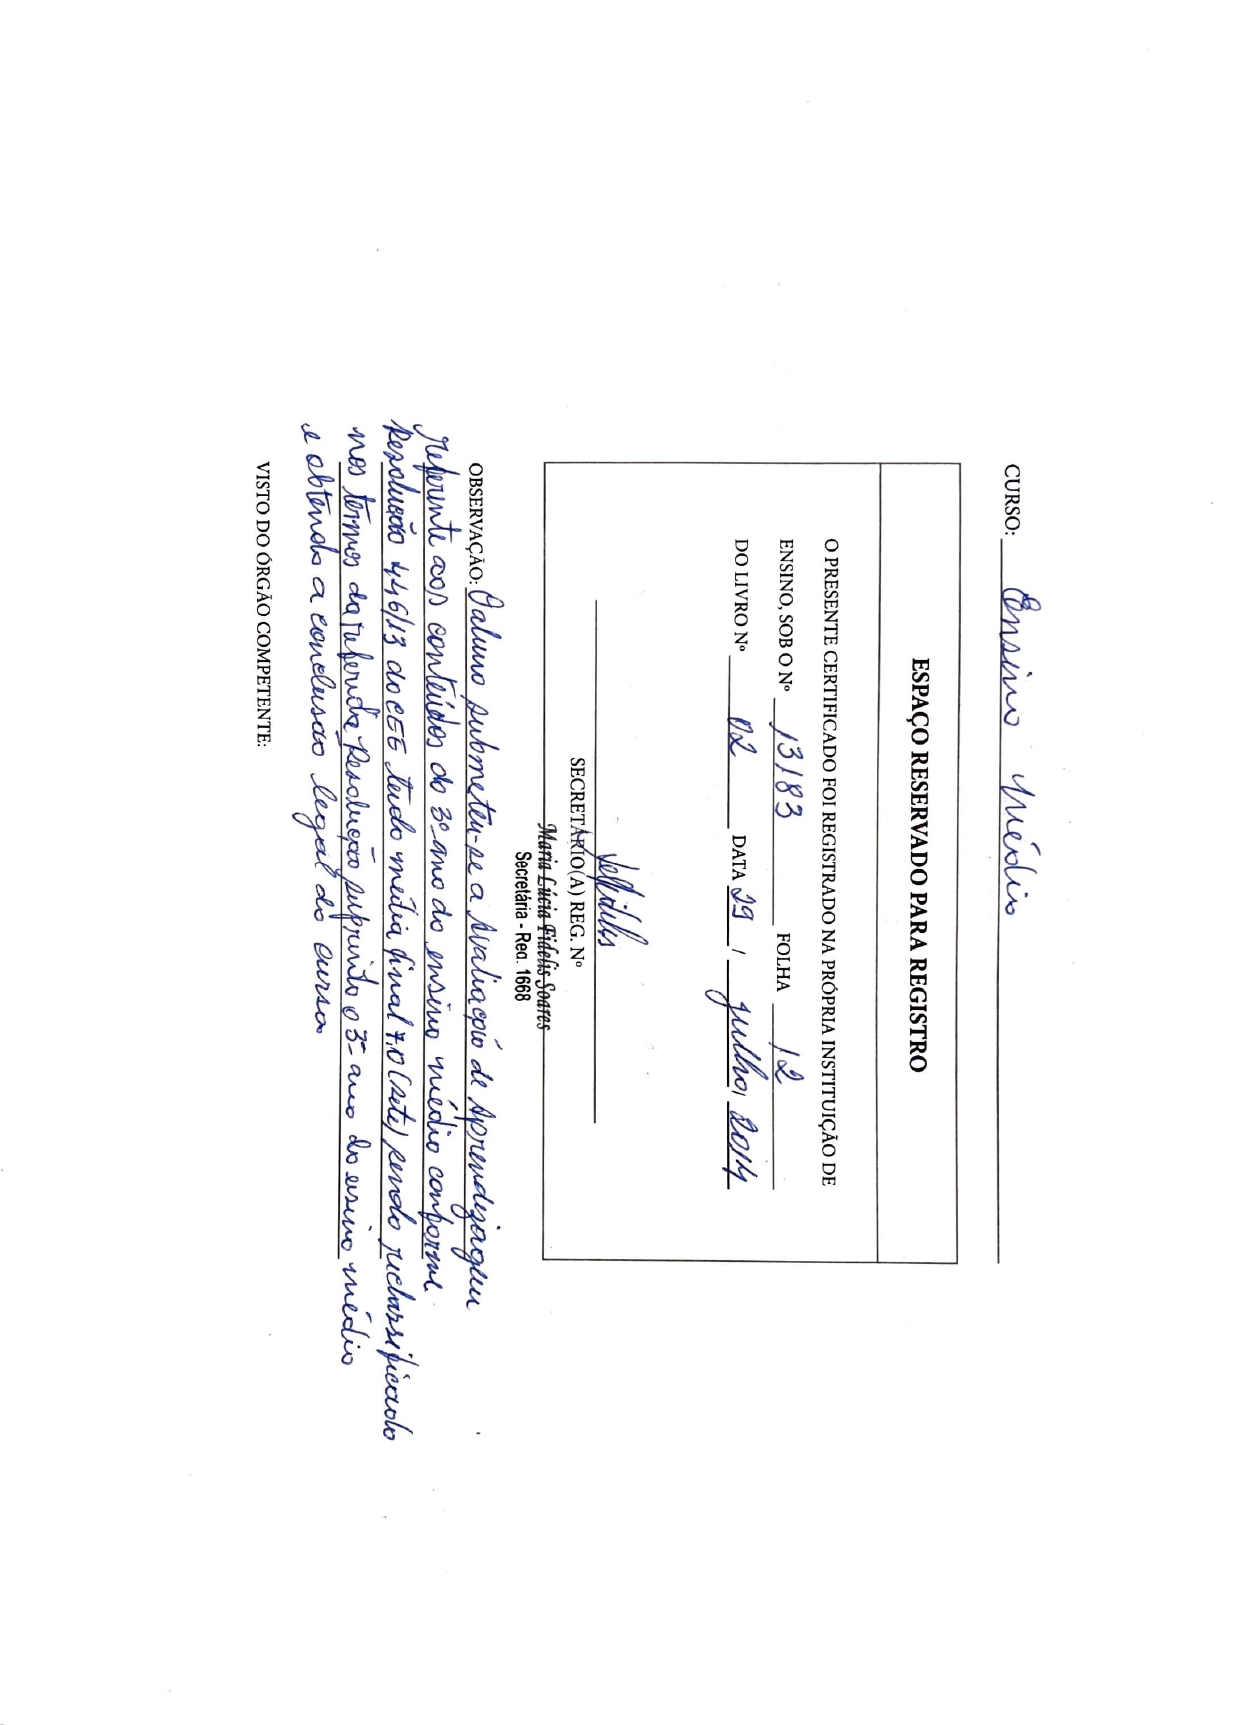 CURSO: Ensino Médio
ESPAÇO RESERVADO PARA REGISTRO
O PRESENTE CERTIFICADO FOI REGISTRADO NA PRÓPRIA INSTITUIÇÃO DE
ENSINO, SOB O Nº 13183 FOLHA 12
DO LIVRO Nº 02 DATA 29 / julho, 2014
SECRETÁRIO(A) REG. Nº
Maria Lúcia Fidelis Soares
Secretária - Reg. 1668
OBSERVAÇÃO: O aluno submeteu-se a Avaliação de Aprendizagem
referente aos conteúdos do 3º ano do ensino médio conforme
Resolução 446/13 do CEE tendo média final 7,0 (sete) sendo reclassificado
nos termos da referida Resolução suprindo o 3º ano do ensino médio
e obtendo a conclusão legal do curso
VISTO DO ÓRGÃO COMPETENTE: